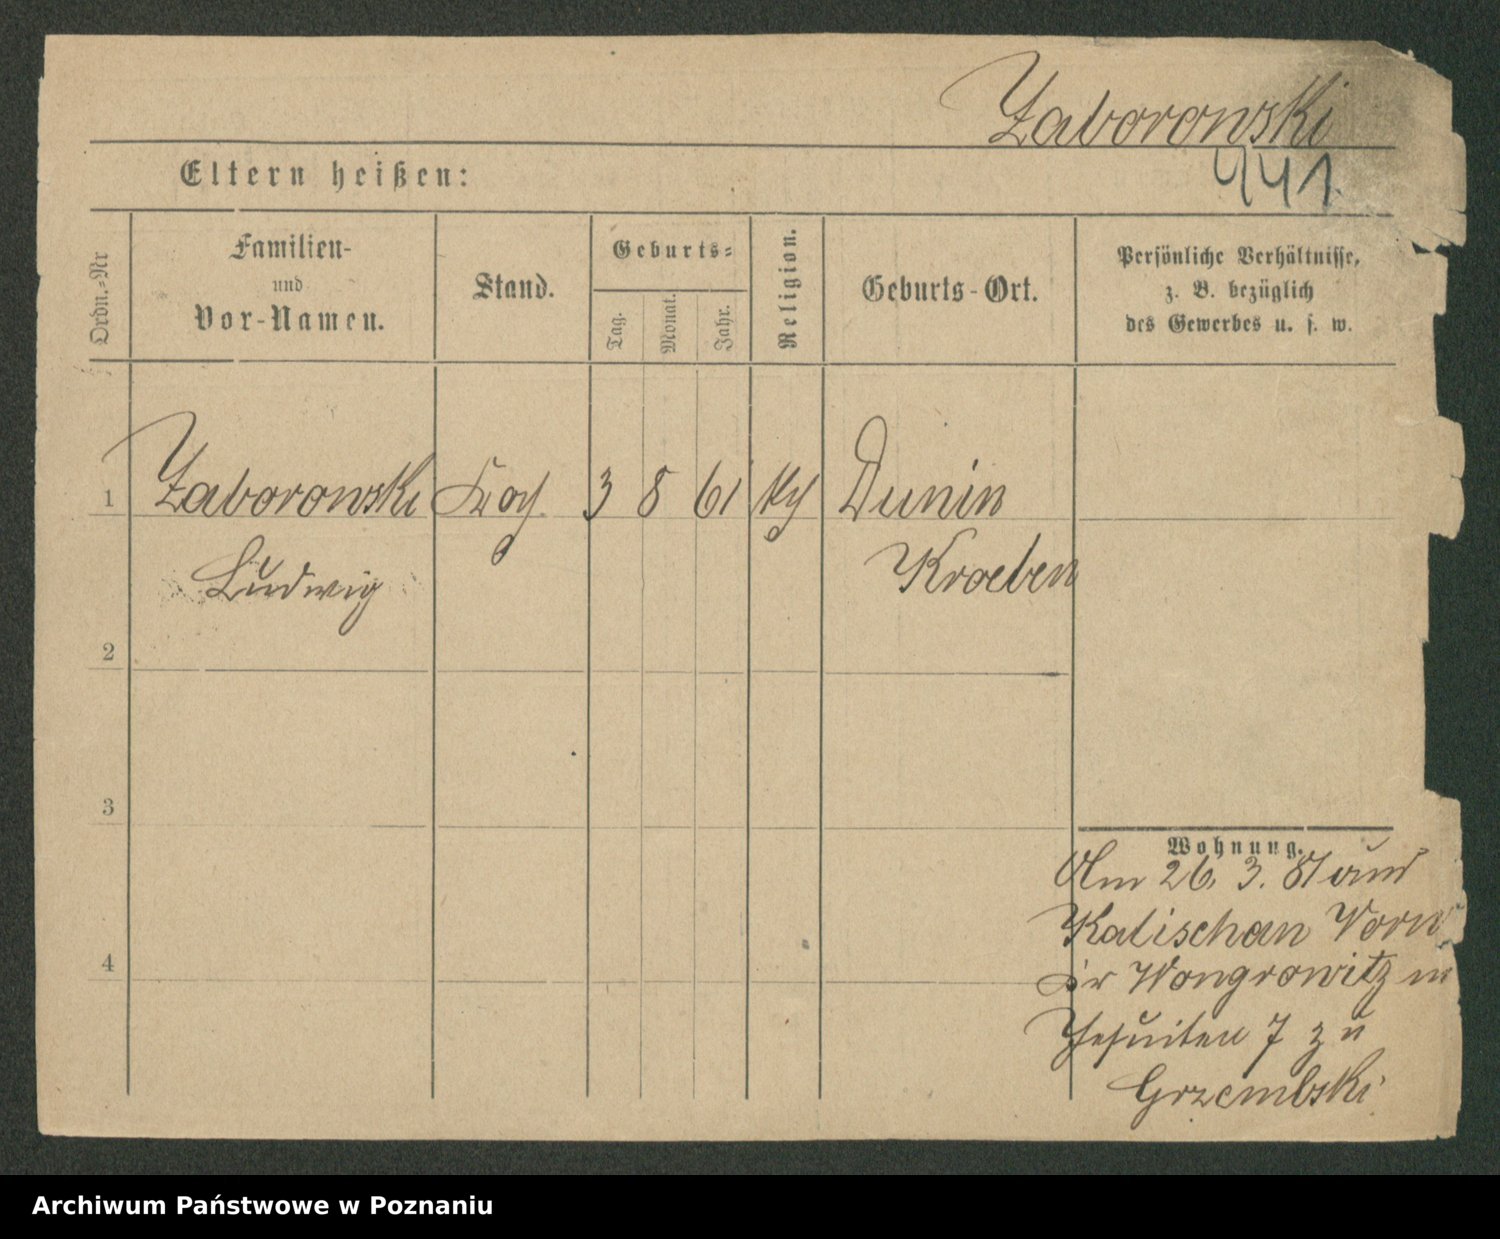 Zaborowski
441.
Eltern heißen:
Ordn.-Nr
Familien-
und
Vor-Namen.
Stand.
Geburts-
Tag.
Monat.
Jahr.
Religion.
Geburts-Ort.
Persönliche Verhältnisse,
z. B. bezüglich
des Gewerbes u. s. w.
1 Zaborowski Koch 3 8 61 Dunin
Ludwig Kroeben
2
3
4
Wohnung.
Am 26. 3. 87 aus
Kalischan
Kr Wongrowitz in
Jesuiten 7 zu
Grzembski
Archiwum Państwowe w Poznaniu